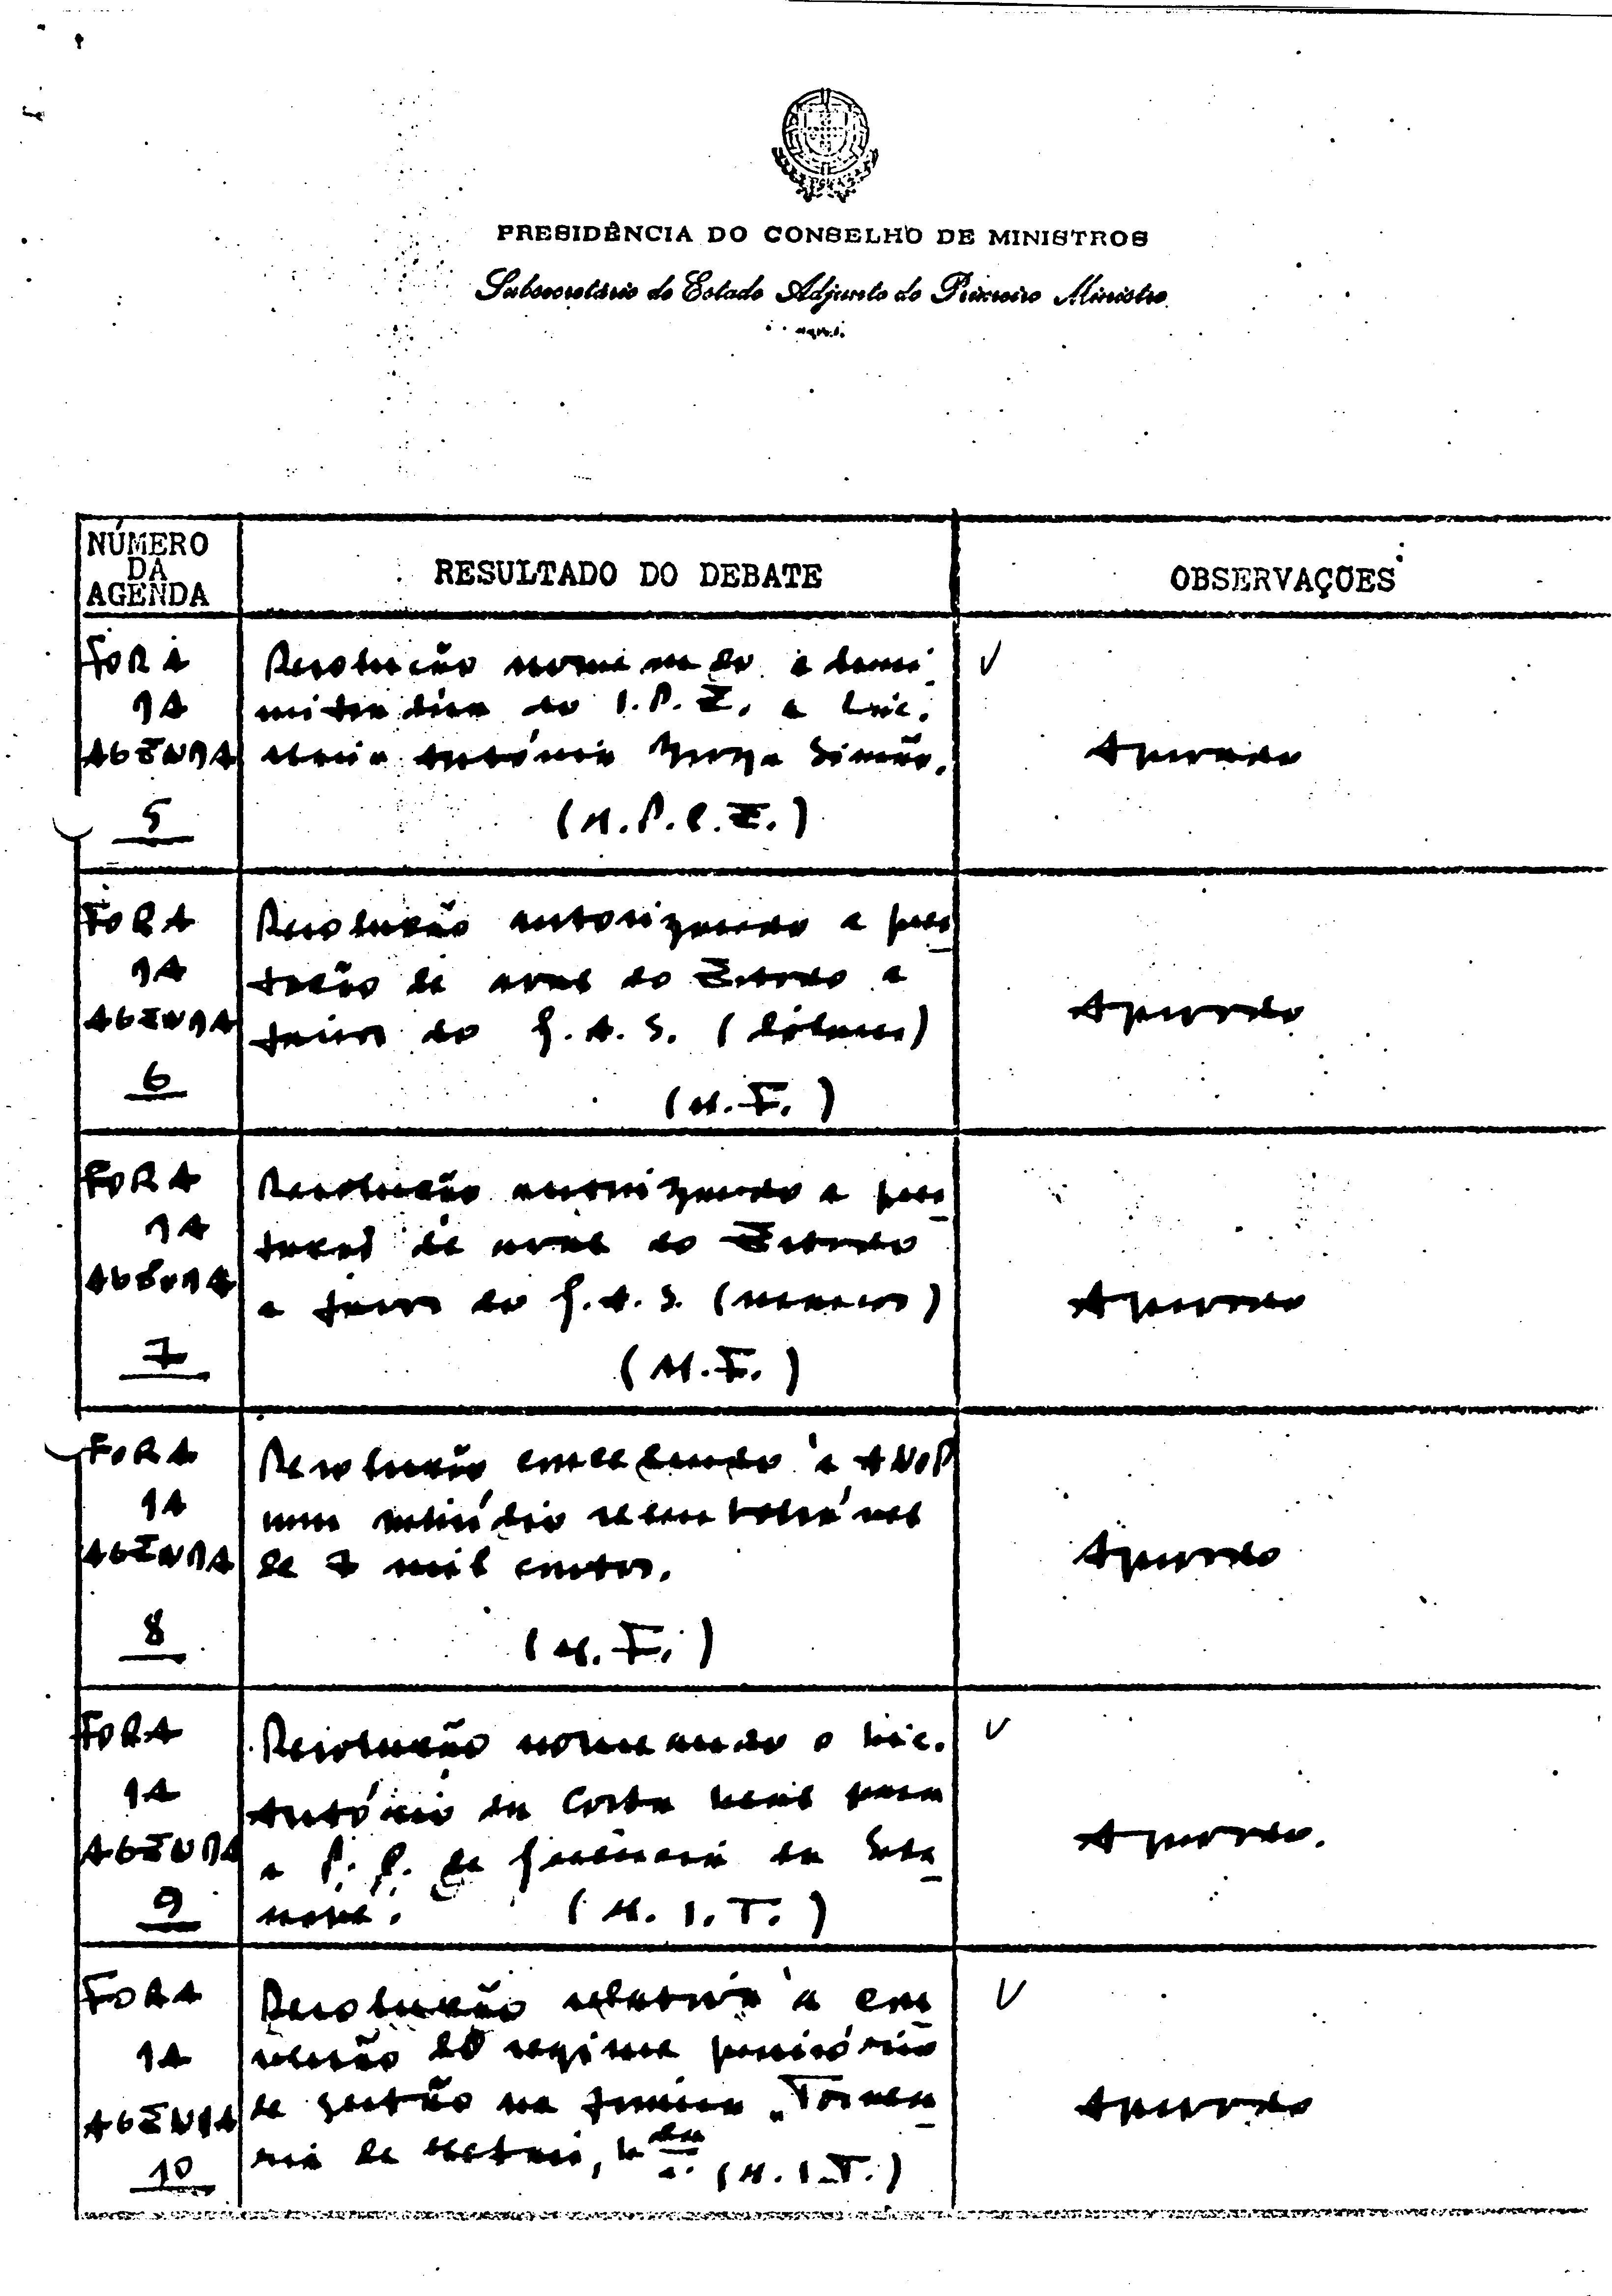 PRESIDÊNCIA DO CONSELHO DE MINISTROS
Subsecretário de Estado Adjunto do Primeiro Ministro
NÚMERO
DA
AGENDA
RESULTADO DO DEBATE
OBSERVAÇÕES
FORA
DA
AGENDA
5
Resolução nomeando
do I.P.E. a Lic.
Maria António Simão.
(M.P.C.E.)
Aprovado
FORA
DA
AGENDA
6
Resolução autorizando a pres
tação de aval do Estado a
favor do G.A.S. (dólares)
(M.F.)
Aprovado
FORA
DA
AGENDA
7
Resolução autorizando a pres
de aval do Estado
a favor do G.A.S. (marcos)
(M.F.)
Aprovado
FORA
DA
AGENDA
8
Resolução concedendo à ANOP
um subsídio reembolsável
de 7 mil contos.
(M.F.)
Aprovado
FORA
DA
AGENDA
9
Resolução nomeando o Lic.
António da Costa Leal para
a de da Seta
nave. (M.I.T.)
Aprovado.
FORA
DA
AGENDA
10
Resolução relativa à ces
sação do regime provisório
de gestão na firma "Tornea
ria de Metais, Lda. (M.I.T.)
Aprovado